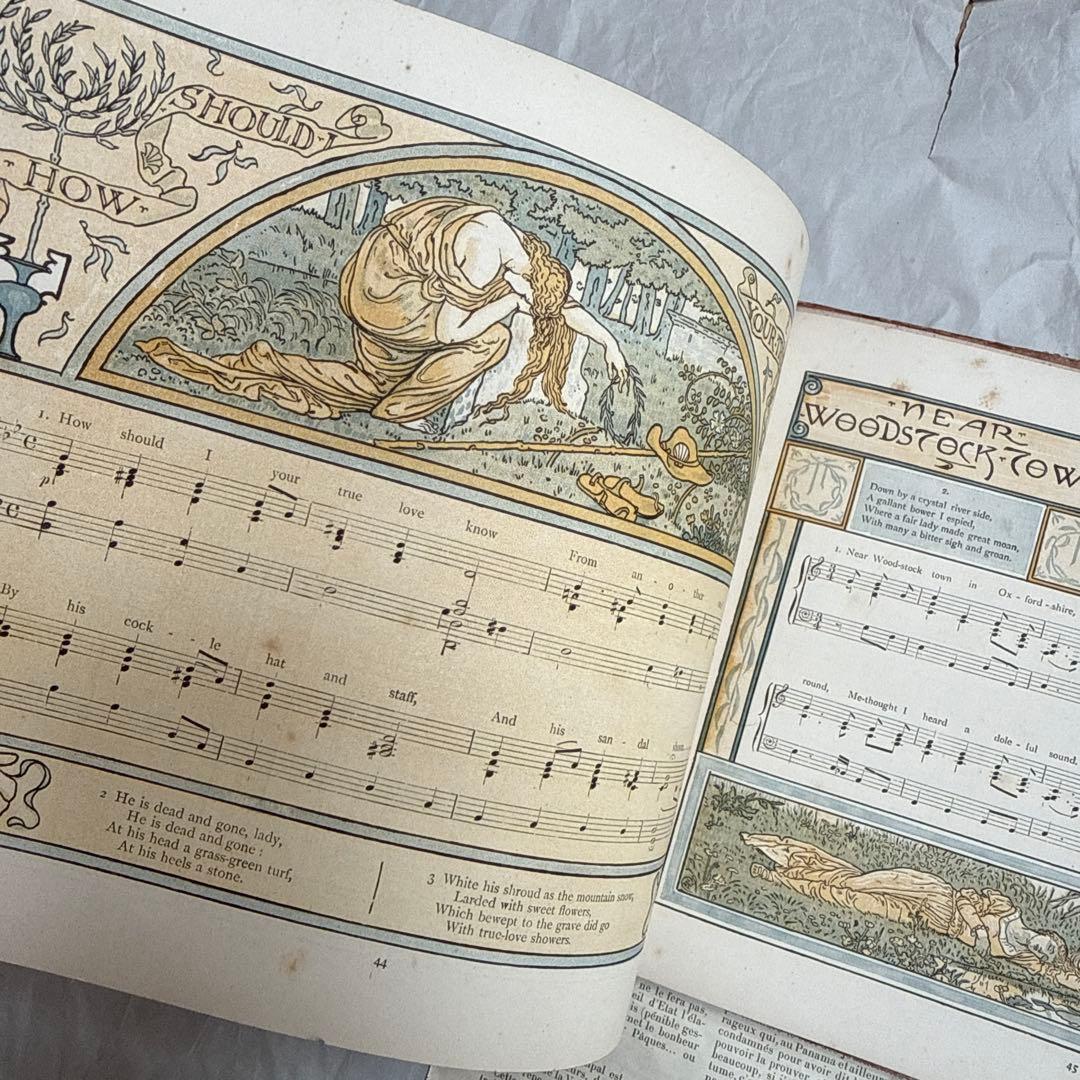 HOW
SHOULD I
YOUR
1. How should I your true love know From an - o - ther
By his cock - - le hat and staff, And his san - dal shoon.
2 He is dead and gone, lady,
He is dead and gone :
At his head a grass-green turf,
At his heels a stone.
3 White his shroud as the mountain snow,
Larded with sweet flowers,
Which bewept to the grave did go
With true-love showers.
44
NEAR
WOODSTOCK-TOW
2.
Down by a crystal river side,
A gallant bower I espied,
Where a fair lady made great moan,
With many a bitter sigh and groan.
1. Near Wood-stock town in Ox - ford - shire,
round, Me-thought I heard a dole - ful sound.
45
ne le fera pas,
eil d'Etat l'éla-
is (pénible ges-
met le bonheur
Pâques... ou
rageux qui, au Panama et ailleurs
condamnés pour avoir dit
pouvoir la prouver
beaucoup, si